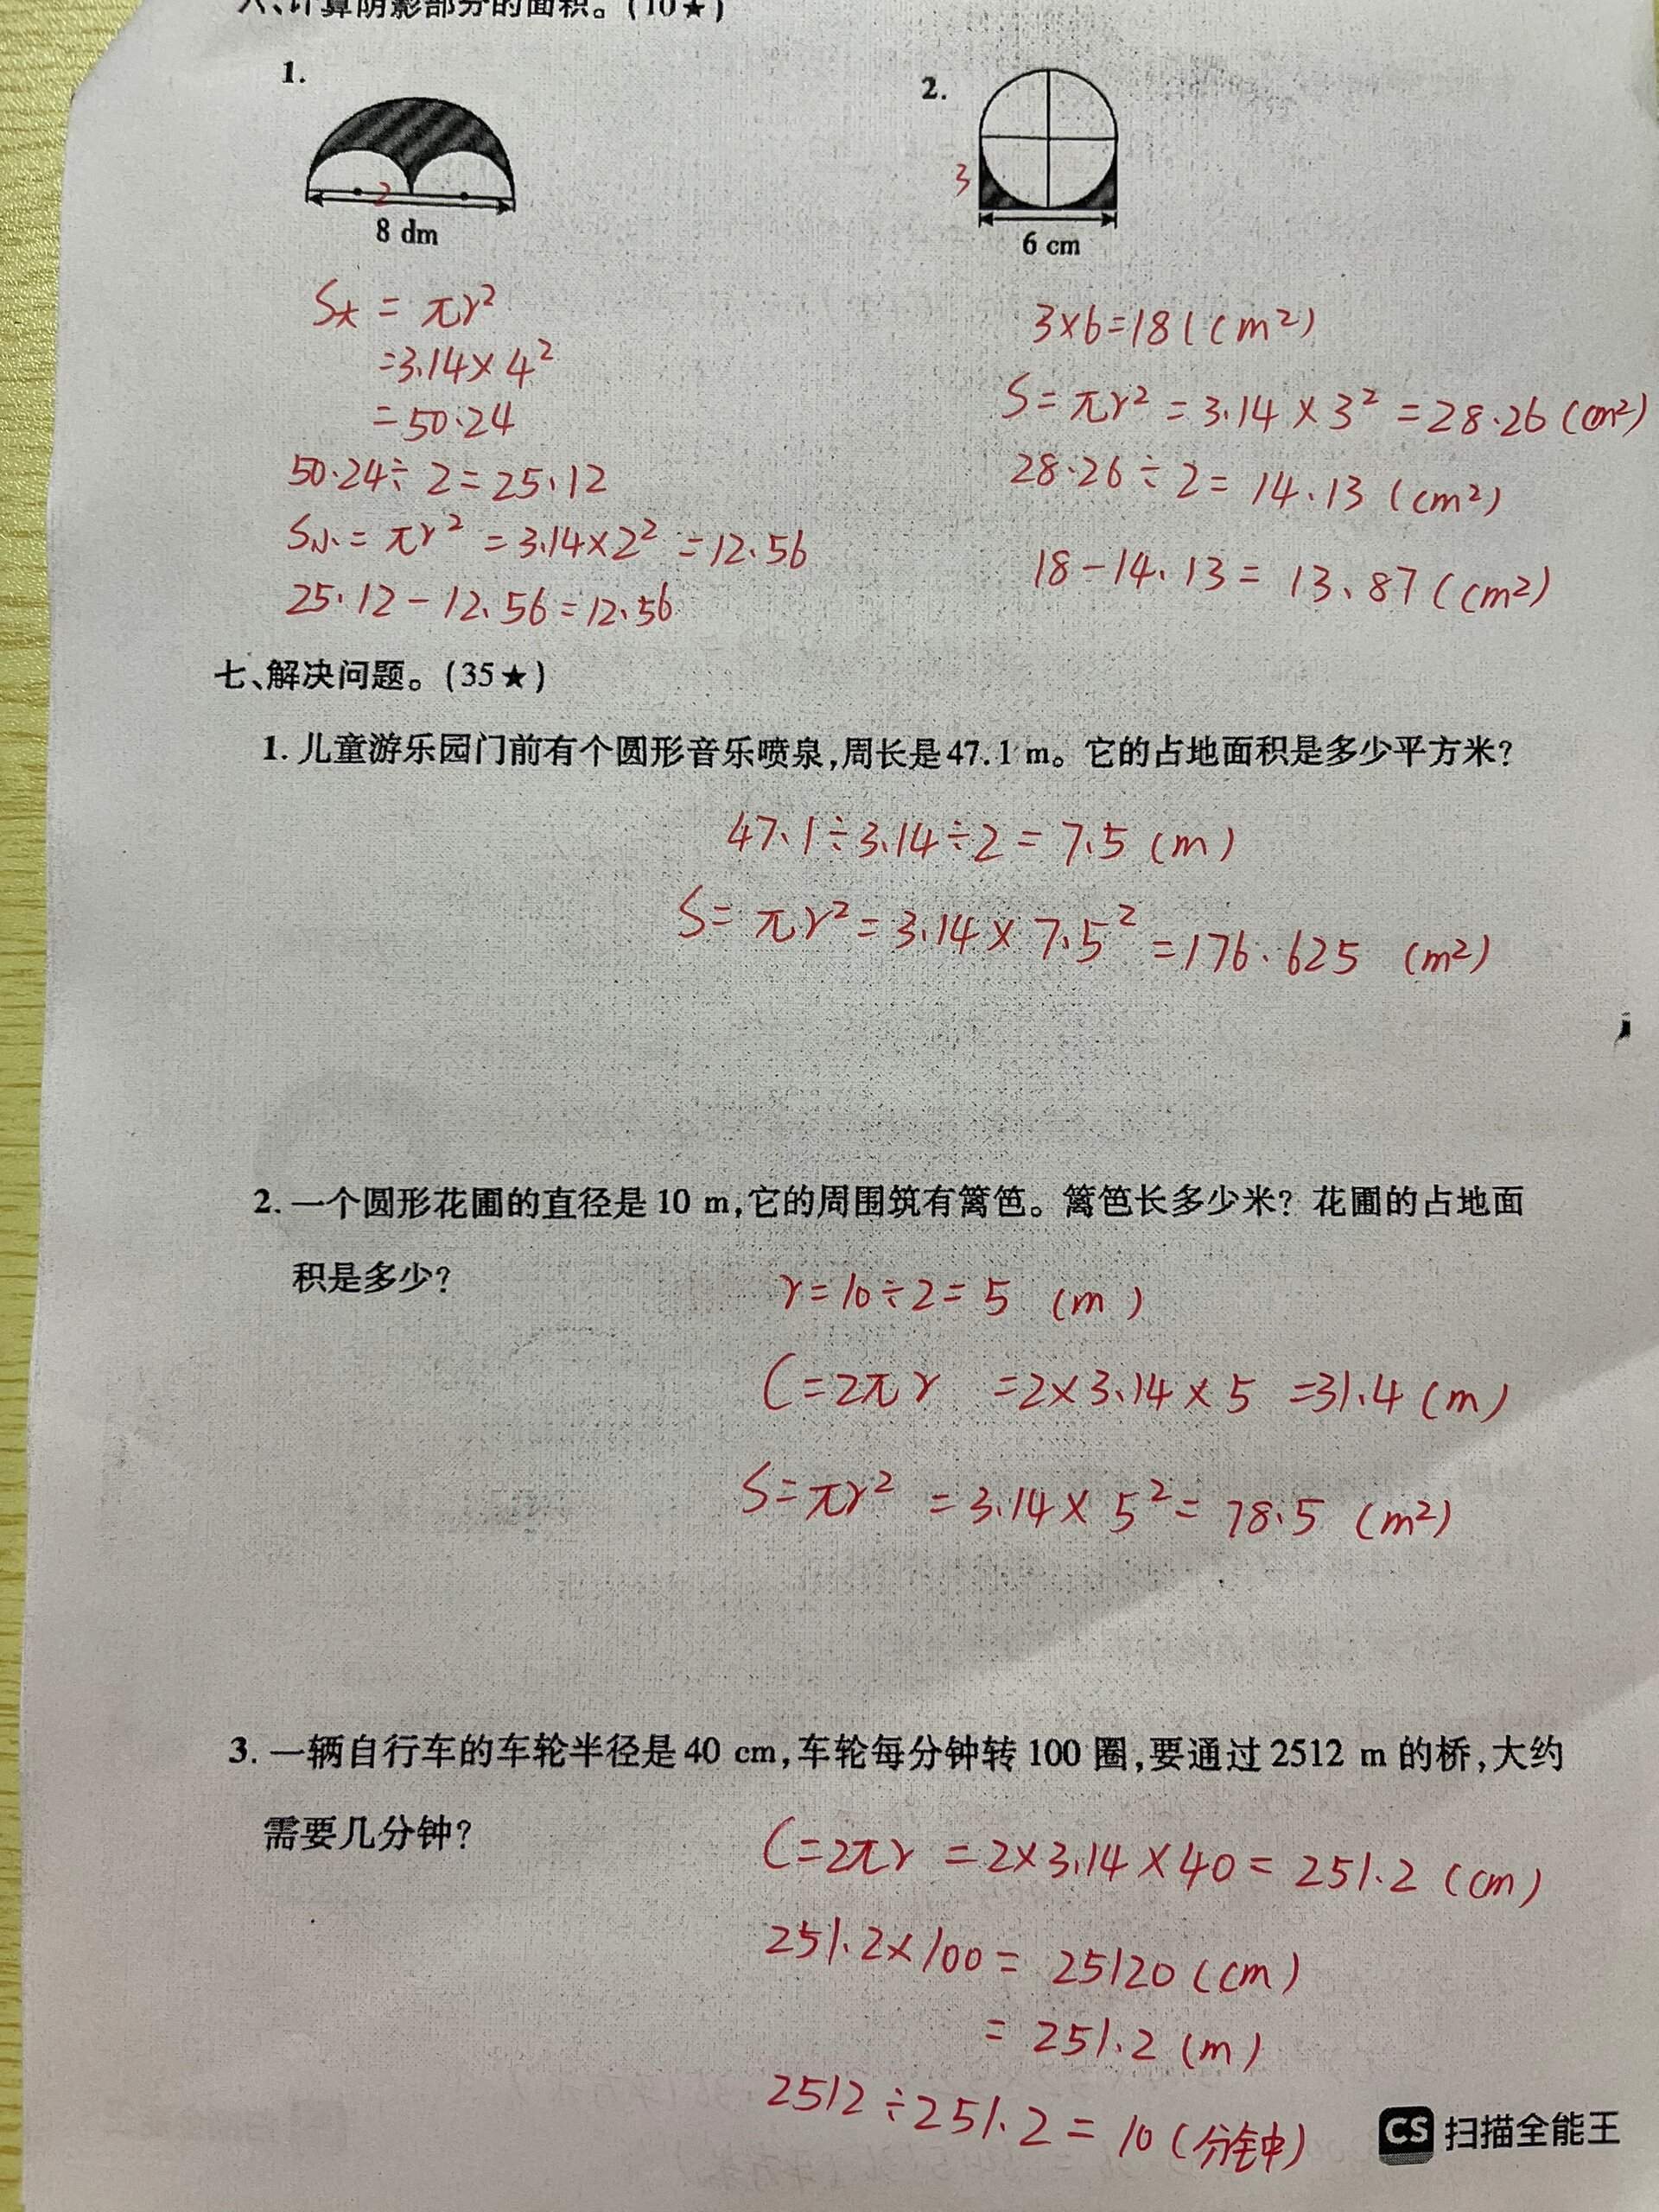 六、计算阴影部分的面积。(10★)
1.
2
8 dm
S大 = πr²
=3.14×4²
=50.24
50.24÷2=25.12
S小=πr²=3.14×2²=12.56
25.12-12.56=12.56
2.
3
6 cm
3×6=18(cm²)
S=πr²=3.14×3²=28.26(cm²)
28.26÷2=14.13(cm²)
18-14.13=13.87(cm²)
七、解决问题。(35★)
1. 儿童游乐园门前有个圆形音乐喷泉,周长是47.1 m。它的占地面积是多少平方米?
47.1÷3.14÷2=7.5(m)
S=πr²=3.14×7.5²=176.625 (m²)
2. 一个圆形花圃的直径是10 m,它的周围筑有篱笆。篱笆长多少米? 花圃的占地面
积是多少?
r=10÷2=5 (m)
C=2πr =2×3.14×5 =31.4(m)
S=πr² =3.14×5²=78.5 (m²)
3. 一辆自行车的车轮半径是40 cm,车轮每分钟转100圈,要通过2512 m的桥,大约
需要几分钟?
C=2πr=2×3.14×40=251.2(cm)
251.2×100=25120(cm)
=251.2(m)
2512÷251.2=10(分钟)
CS 扫描全能王